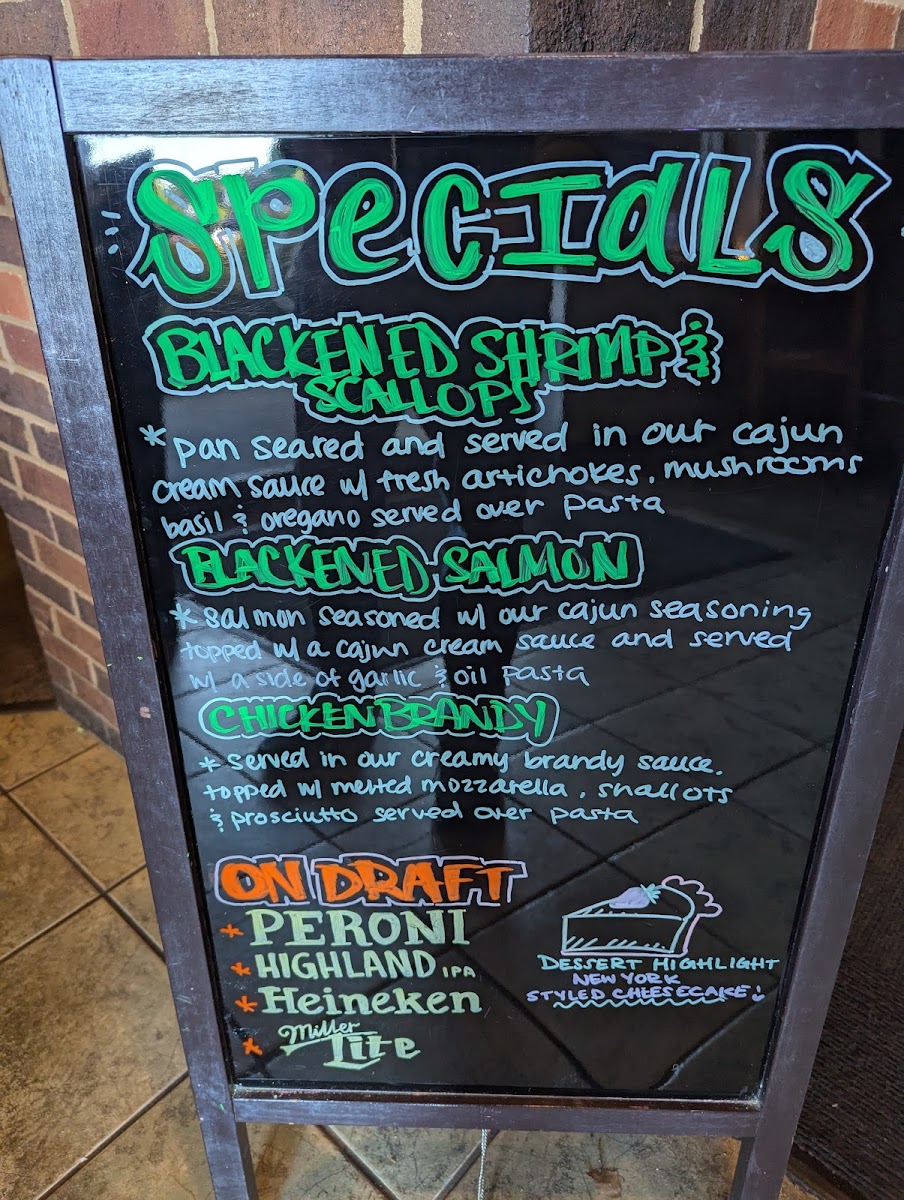 SPecIaLS
BLACKENED SHRIMP &
SCALLOPS
* pan seared and served in our cajun
cream sauce w/ fresh artichokes, mushrooms
basil & oregano served over pasta
BLACKENED SALMON
* salmon seasoned w/ our cajun seasoning
topped w/ a cajun cream sauce and served
w/ a side of garlic & oil pasta
CHICKEN BRANDY
* served in our creamy brandy sauce.
topped w/ melted mozzarella, shallots
& prosciutto served over pasta
ON DRAFT
* PERONI
* HIGHLAND IPA
* Heineken
* Miller
Lite
DESSERT HIGHLIGHT
NEW YORK
STYLED CHEESECAKE!